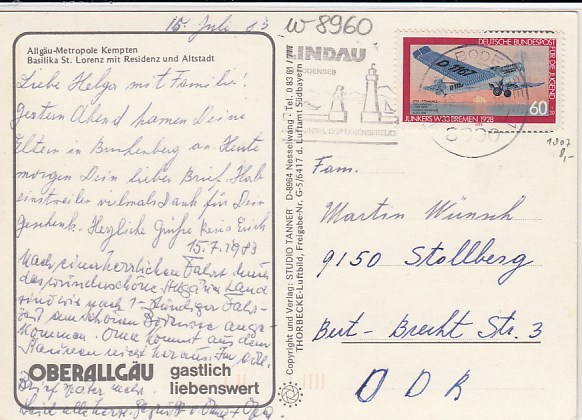 15. Juli 83
W-8960
Allgäu-Metropole Kempten
Basilika St. Lorenz mit Residenz und Altstadt
Liebe Helga mit Familie!
Gestern Abend kamen Deine
Eltern in an. Heute
morgen Dein lieber Brief. Hab
einstweilen vielmals Dank für Dein
Geschenk. Herzliche Grüße Erich
15.7.1983
Nach einer herrlichen Fahrt durch
das wunderschöne Allgäuer Land
sind wir nach 1-stündiger Fahr-
zeit am schönen Bodensee ange-
kommen. Oma kommt aus dem
Staunen nicht heraus.
Brief später mehr.
Seid alle herzl. gegrüßt v. Oma + Opa
OBERALLGÄU
gastlich
liebenswert
Copyright und Verlag: STUDIO TANNER D-8964 Nesselwang · Tel. 0 83 61 /
THORBECKE-Luftbild, Freigabe-Nr. G-5/6417 d. Luftamt Südbayern
LINDAU
BODENSEE
DEUTSCHE BUNDESPOST
FÜR DIE JUGEND
D 1167
60
JUNKERS W 33 BREMEN 1928
Fam.
Martin Wünsch
9150 Stollberg
Bert-Brecht Str. 3
DDR